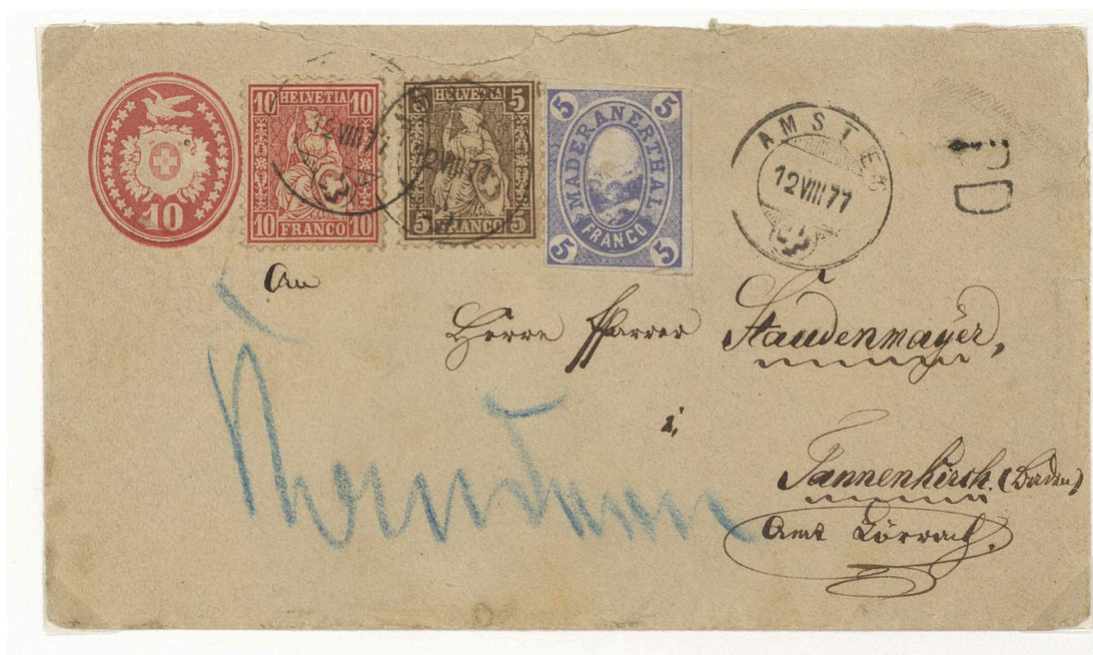 10
10 HELVETIA 10
10 FRANCO 10
12 VIII 77
5 HELVETIA 5
5 FRANCO 5
12 VIII 77
5 5
MADERANERTHAL
FRANCO
5 5
AMSTEG
12 VIII 77
PD
An
Herrn Pfarrer Staudenmayer,
i,
Tannenkirch. (Baden)
Amt Lörrach.